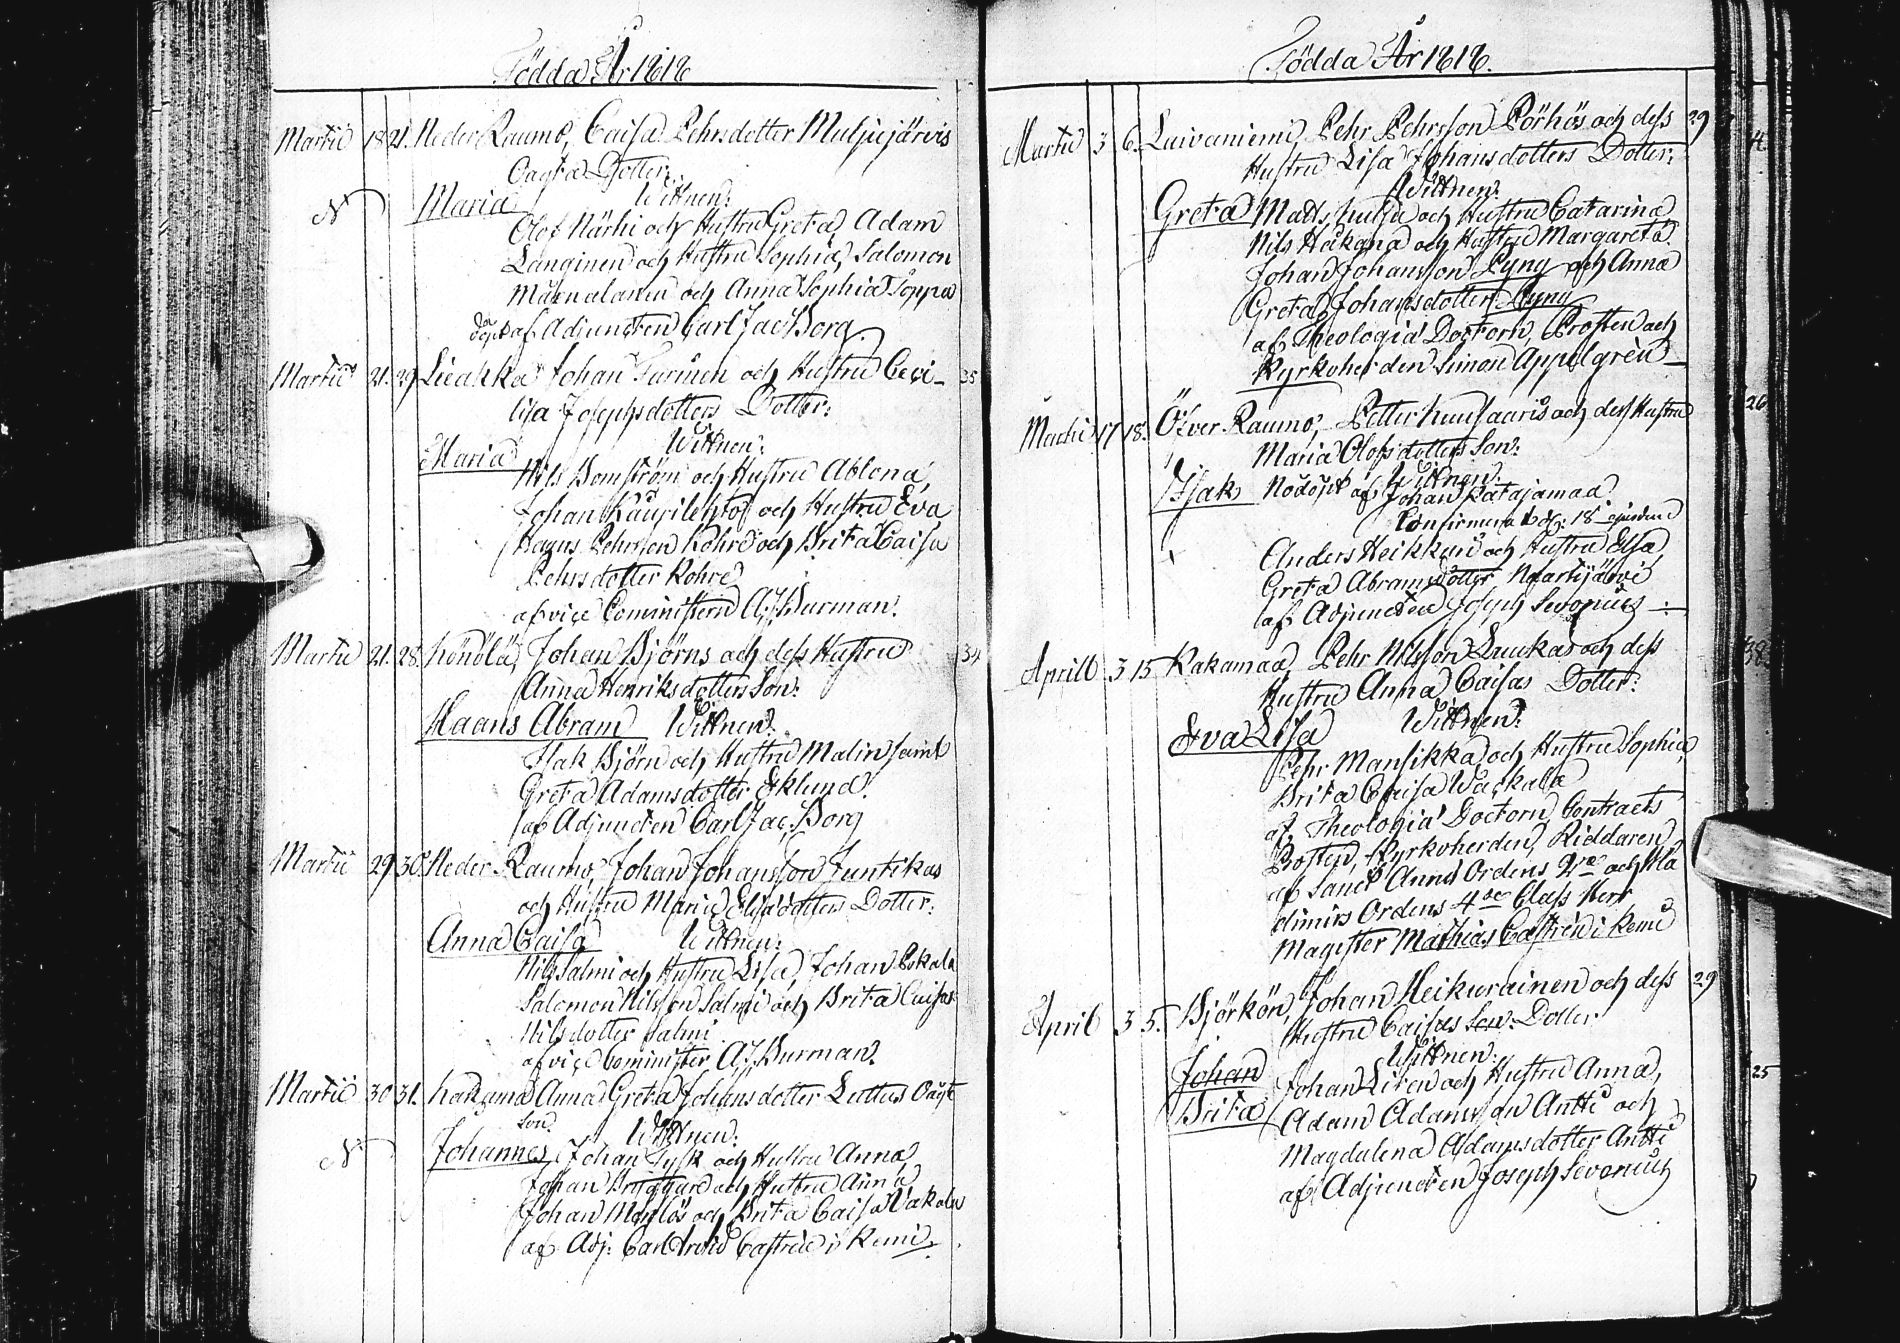 Födda År 1818
Martii 18 21. Neder Raumo, Caisa Pehrsdotter Mulsujärvis
Oägta Dotter:
N Maria Wittnen:
Olof Närhi och Hustru Greta, Adam
Langinen och Hustru Sophia, Salomon
och Anna Sophia Soppa
döpt af Adjuncten Carl Jac: Borg.
Martii 21. 29 Liedkka Johan Turinen och Hustru Ceci- 35
lisa Josephsdotters Dotter:
Wittnen:
Maria
Nils Bomström och Hustru Ablona,
Johan Kaupilehto och Hustru Eva
Magnus Pehrsson Rohre och Brita Caisa
Pehrsdotter Rohre
af vice Comministern A.J. Burman.
Martii 21. 28. Könölä, Johan Björns och dess Hustru 34
Anna Henriksdotters Son:
Haans Abram Wittnen:
Isak Björn och Hustru Malin samt
Greta Adamsdotter Eklund.
af Adjuncten Carl Jac: Borg
Martii 29 30. Neder Raumo, Johan Johansson Juntikas
och Hustru Maria Elisædotters Dotter:
Anna Caisa Wittnen:
Nils Salmi och Hustru Lisa, Johan Eskola
Salomon Nilsson Salmi och Brita Caisa
Nilsdotter Salmi
af vice Cominister A J Burman.
Martii 30 31. Kakama Anna Greta Johansdotter Luttus Oägt
Son. Wittnen:
N Johannes Johan Tysk och Hustru Anna
Johan Bryggare och Hustru Anna
Johan och Brita Caisa Wakala
af Adj: Carl Arvid Castrén i Kemi.
Födda År 1818.
Martii 3 6. Laivaniemi, Pehr Pehrsson Pörhös och dess 29
Hustru Lisa Johansdotters Dotter:
Wittnen:
Greta Matts Hulja och Hustru Catarina
Nils Håkana och Hustru Margareta.
Johan Johansson Lyng och Anna
Greta Johansdotter Lyng
af Theologiæ Doctorn, Prosten och
Kyrkoherden Simon Appelgren
Martii 17 18. Öfver Raumo, Petter Kuusaaris och dess Hustru 26
Maria Olofsdotters Son:
Wittnen:
Isak Nödöpt af Johan Katajamaa.
Confirmerad d: 18 ejusdem
Anders Heikkari och Hustru Elsa,
Greta Abramsdotter Martijärvi
af Adjuncten Joseph Sevonius
Aprill 3 15 Kakamaa, Pehr Nilsson Luukas och dess 38
Hustru Anna Caisas Dotter:
Eva Lisa Wittnen:
Pehr Mansikka och Hustru Sophia,
Brita Caisa Wackala
af Theologiæ Doctorn, Contracts
Prosten, Kyrkoherden, Riddaren
af Sanct Annæ Ordens 2ra och Wla
dimirs Ordens 4de Class Herr
Magister Mathias Castrén i Kemi
April 3 5. Björkön, Johan Heikurainen och dess 29
Hustru Caisas Son: Dotter
Wittnen:
Johan Johan Liten och Hustru Anna, 25
Brita Adam Adamsson Antti och
Magdalena Adamsdotter Antti
af Adjuncten Joseph Sevonius